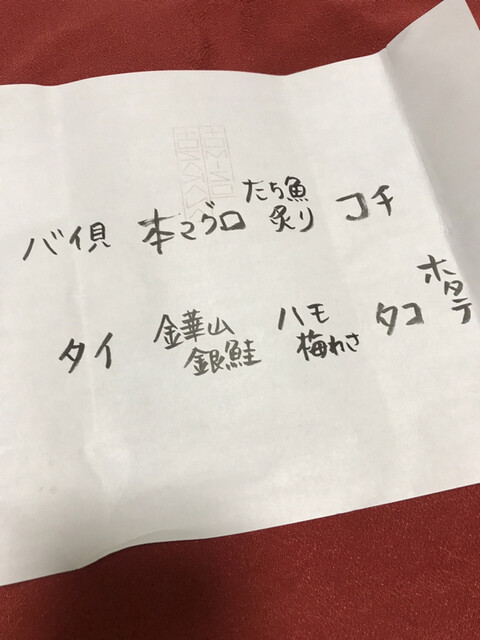 バイ貝 本マグロ たち魚炙り コチ
タイ 金華山銀鮭 ハモ梅わさ タコ ホタテ